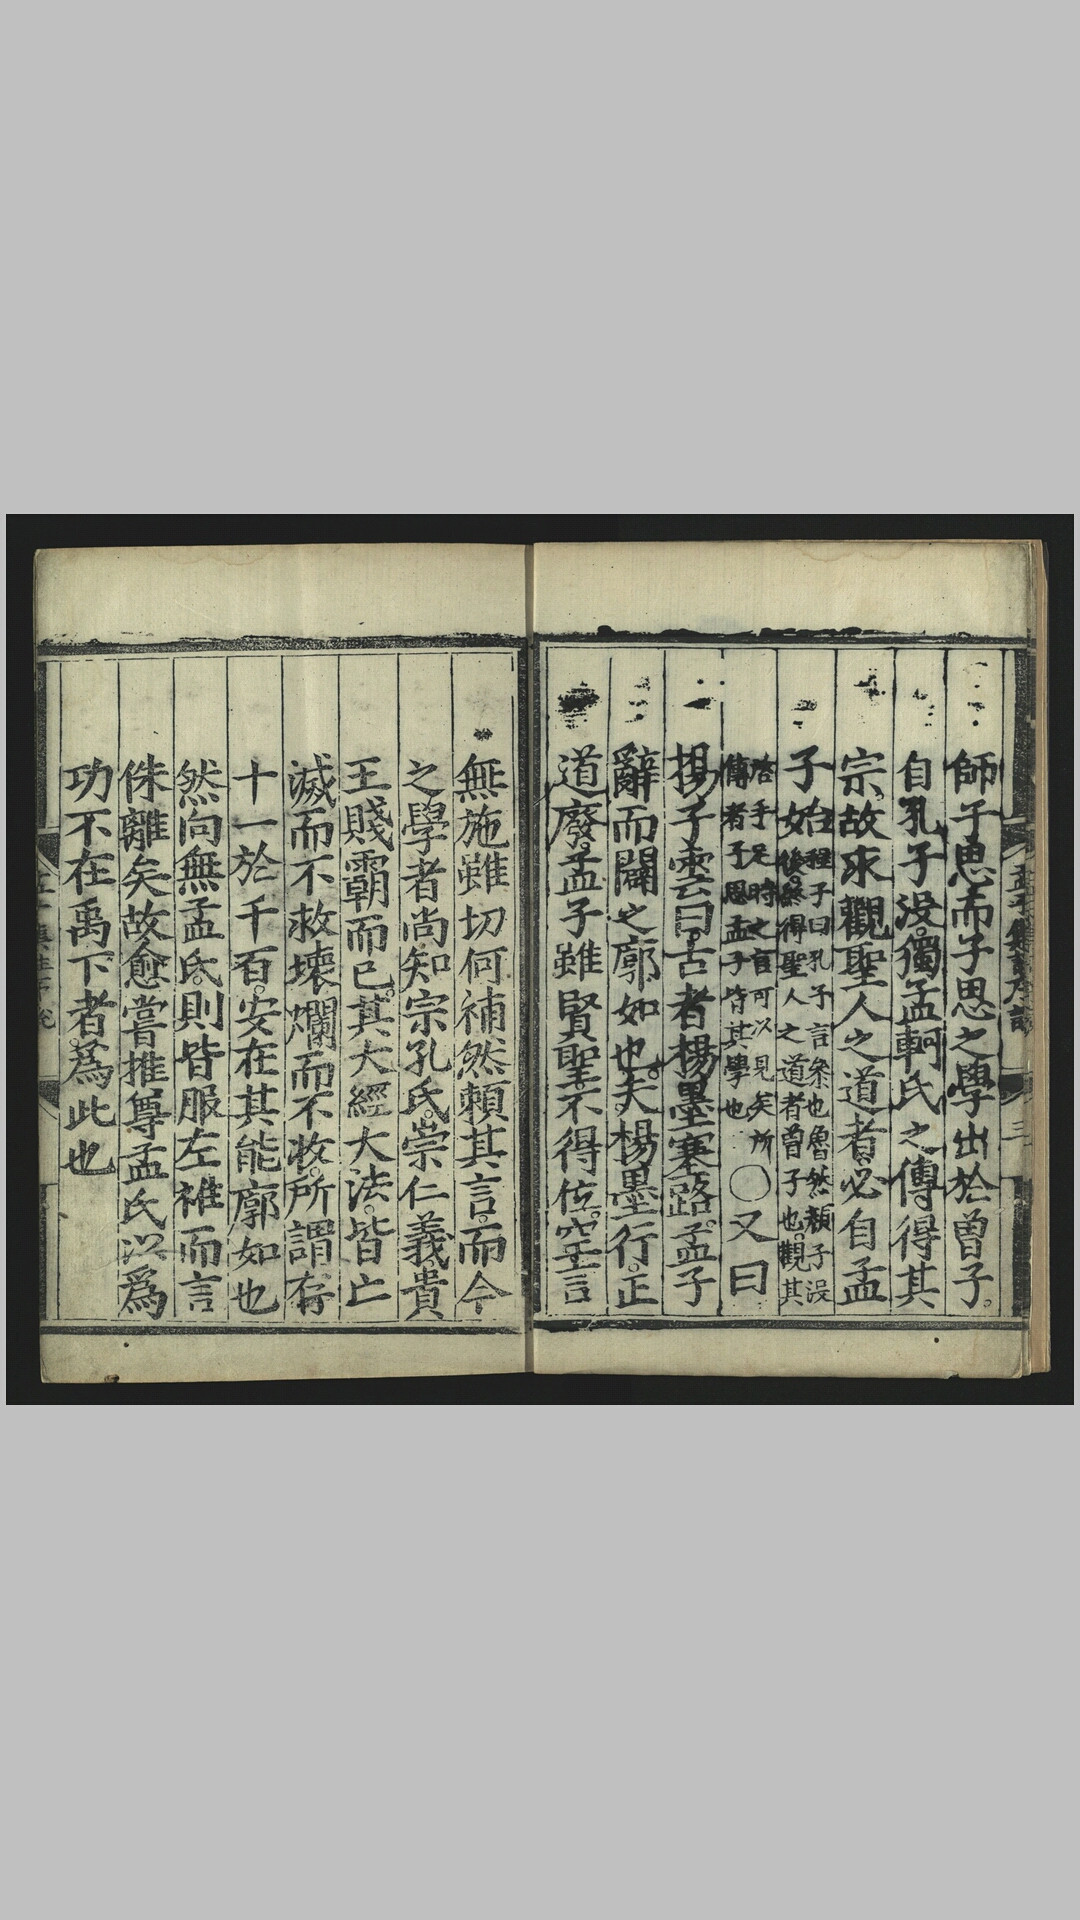 孟子集註序說 三
師子思而子思之學出於曾子。
自孔子没。獨孟軻氏之傳得其
宗。故求觀聖人之道者。必自孟
子始程子曰孔子言參也魯然顏子没
後終得聖人之道者曾子也。觀其
啓手足時之言可以見矣所
傳者子思孟子皆其學也○又曰
揚子雲曰。古者楊墨塞路。孟子
辭而闢之廓如也。夫楊墨行。正
道廢。孟子雖賢聖。不得位。空言
無施雖切何補然賴其言。而今
之學者尚知宗孔氏。崇仁義。貴
王賤霸而已。其大經大法。皆亡
滅而不救壞爛而不收。所謂存
十一於千百。安在其能廓如也
然向無孟氏。則皆服左衽而言
侏離矣故愈嘗推尊孟氏以爲
功不在禹下者。爲此也